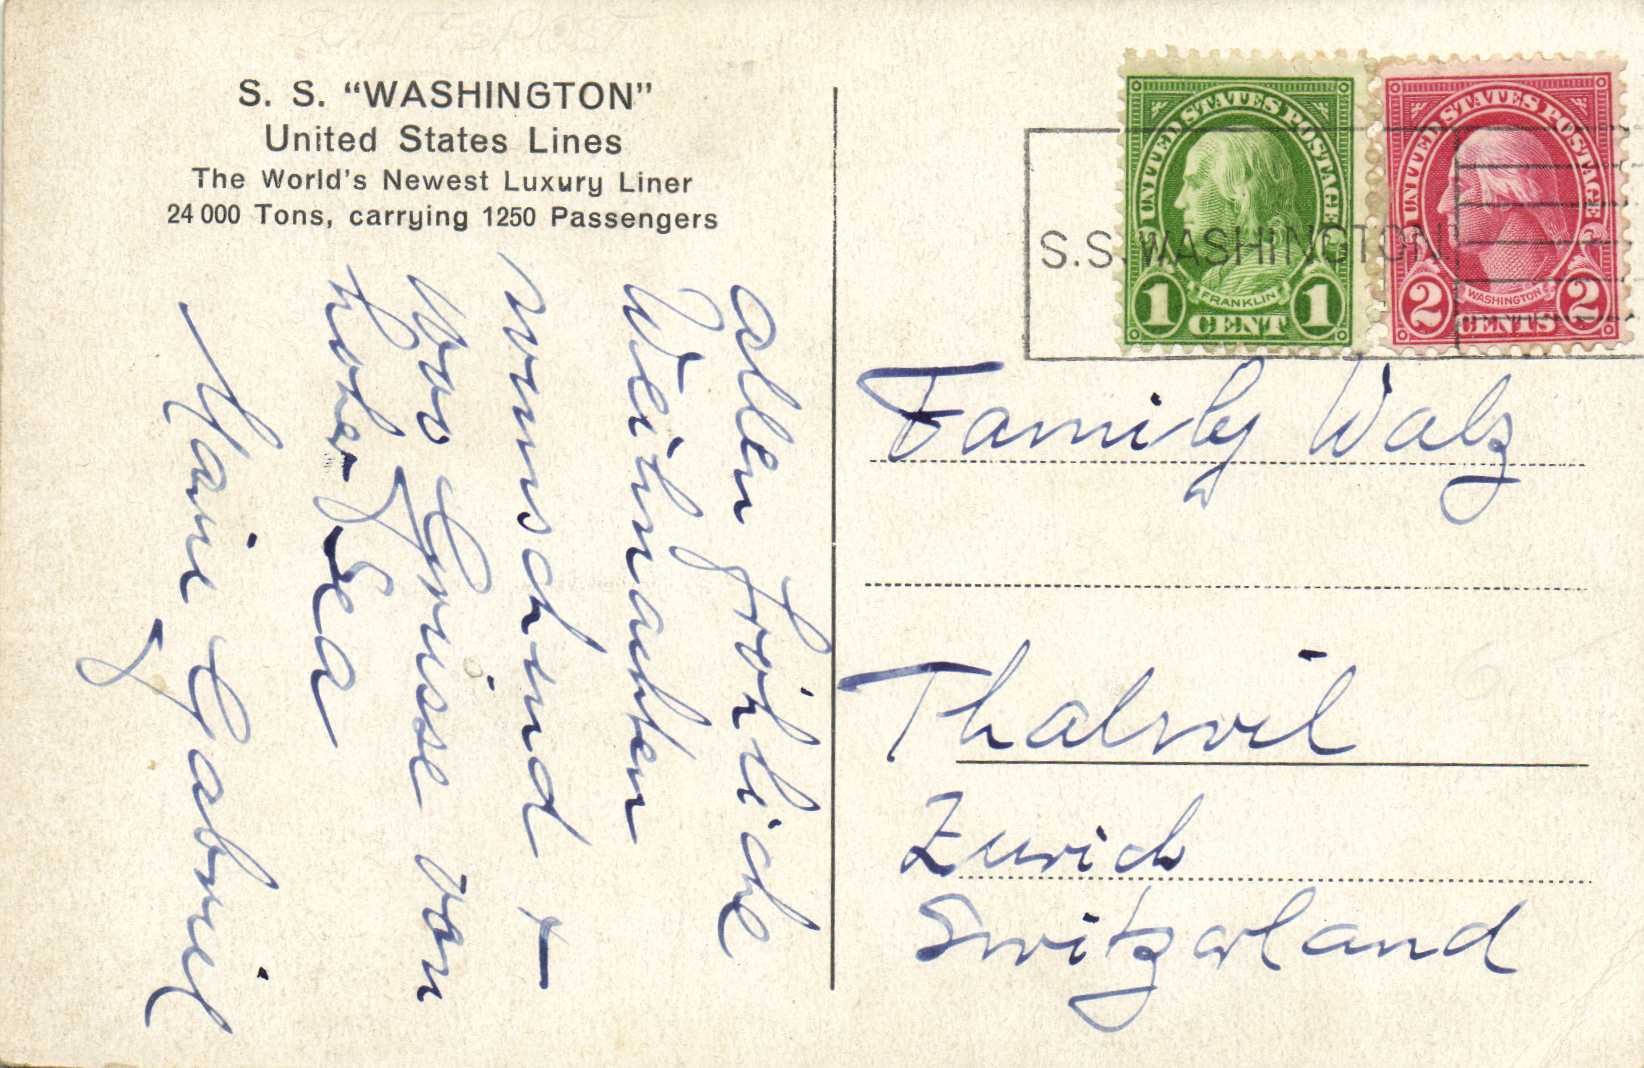 S. S. “WASHINGTON”
United States Lines
The World's Newest Luxury Liner
24 000 Tons, carrying 1250 Passengers
allen fröhliche
Weihnachten
wünschend +
Grüsse von
hoher Sea
Marie Gabriel
UNITED STATES POSTAGE
FRANKLIN
1 CENT 1
UNITED STATES POSTAGE
WASHINGTON
2 CENTS 2
S.S. WASHINGTON.
Family Walz
Thalwil
Zurich
Switzerland